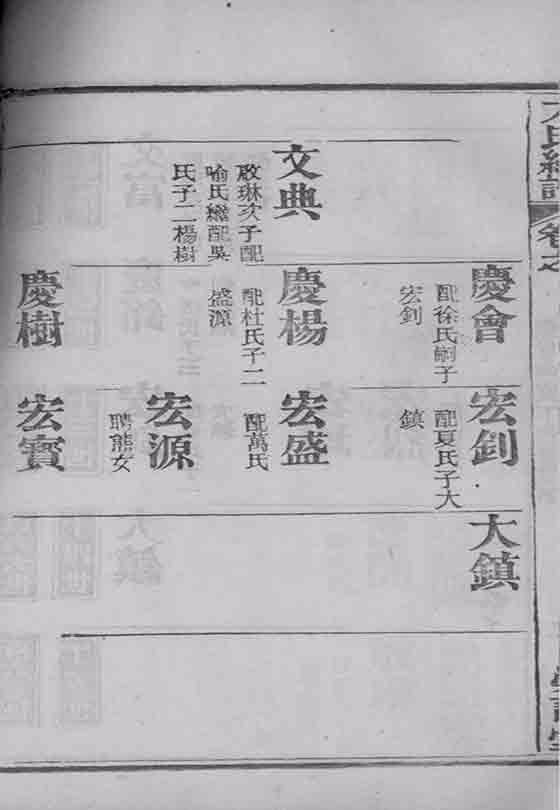 卷之
文典
琳次子配
喻氏繼配吳
氏子二楊樹
慶會
配徐氏嗣子
宏釗
慶楊
配杜氏子二
盛源
慶樹
宏釗
配夏氏子大
鎮
宏盛
配萬氏
宏源
聘熊女
宏賓
大鎮